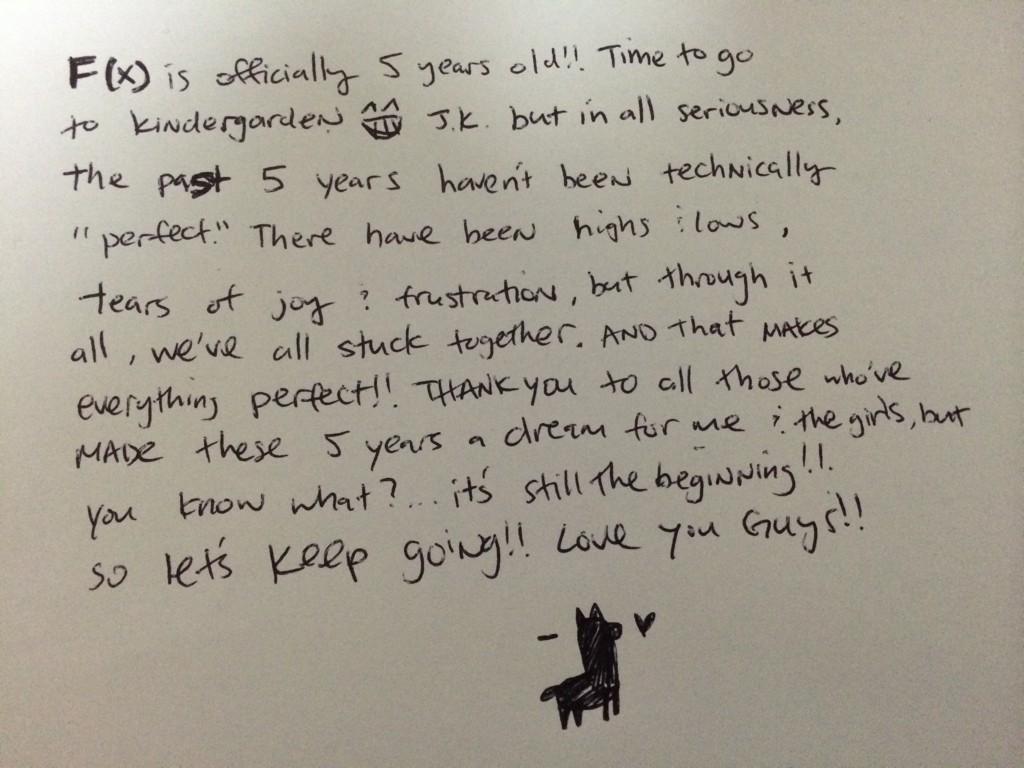 F(x) is officially 5 years old!! Time to go
to kindergarden J.K. but in all seriousness,
the past 5 years haven't been technically
"perfect." There have been highs & lows,
tears of joy & frustration, but through it
all, we've all stuck together. AND that MAKES
everything perfect!! THANK you to all those who've
MADE these 5 years a dream for me & the girls, but
you know what?... it's still the beginning!!.
so let's keep going!! Love you Guys!!
- ♥